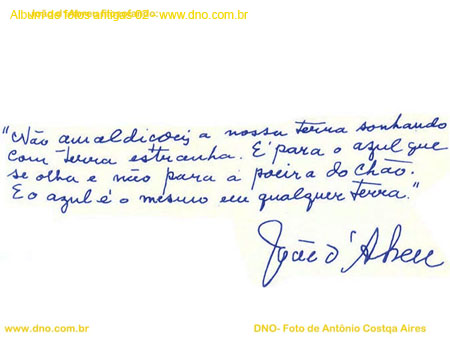 Album de fotos antigas 02 - www.dno.com.br
"Não amaldicoeis a nossa terra sonhando
com terra estranha. É para o azul que
se olha e não para a poeira do chão.
E o azul é o mesmo em qualquer terra."
João d'Abreu
www.dno.com.br
DNO- Foto de Antônio Costqa Aires